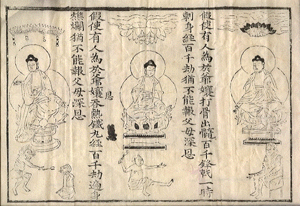 假使有人為於爺孃打骨出髓百千鋒戟一時
刺身經百千劫猶不能報父母深恩
恩
假使有人為於爺孃吞熱鐵丸經百千劫遍身
燋爛猶不能報父母深恩